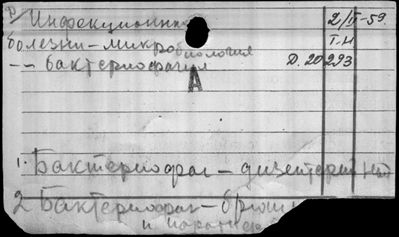 Инфекционные 2/II-59.
болезни - микробиология Т-Н
-- бактериофагия Д. 20 293
А
1. Бактериофаг - дизентерийный
2 Бактериофаг - брюшн
и парат